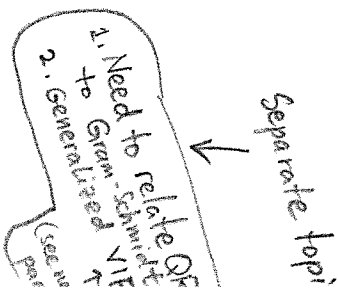 Separate topi
1. Need to relate QR
to Gram-Schmidt
2. Generalized VIF
(see